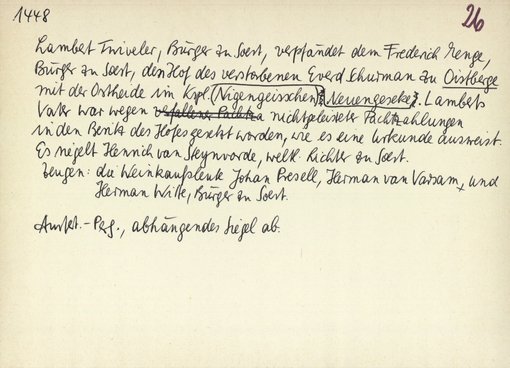 1448
26
Lambert Twiveler, Bürger zu Soest, verpfändet dem Frederich Menge,
Bürger zu Soest, den Hof des verstorbenen Everd Schurman zu Oistberge
mit der Ostheide im Kspl. (Nigengeisschen) [Neuengeseke]. Lamberts
Vater war wegen nichtgeleisteter Pachtzahlungen
in den Besitz des Hofes gesetzt worden, wie es eine Urkunde ausweist.
Es siegelt Henrich van Steynvorde, weltl. Richter zu Soest.
Zeugen: die Weinkaufsleute Johan Presell, Herman van Varsam, und
Herman Witte, Bürger zu Soest.
Ausf.-Perg., abhängendes Siegel ab.